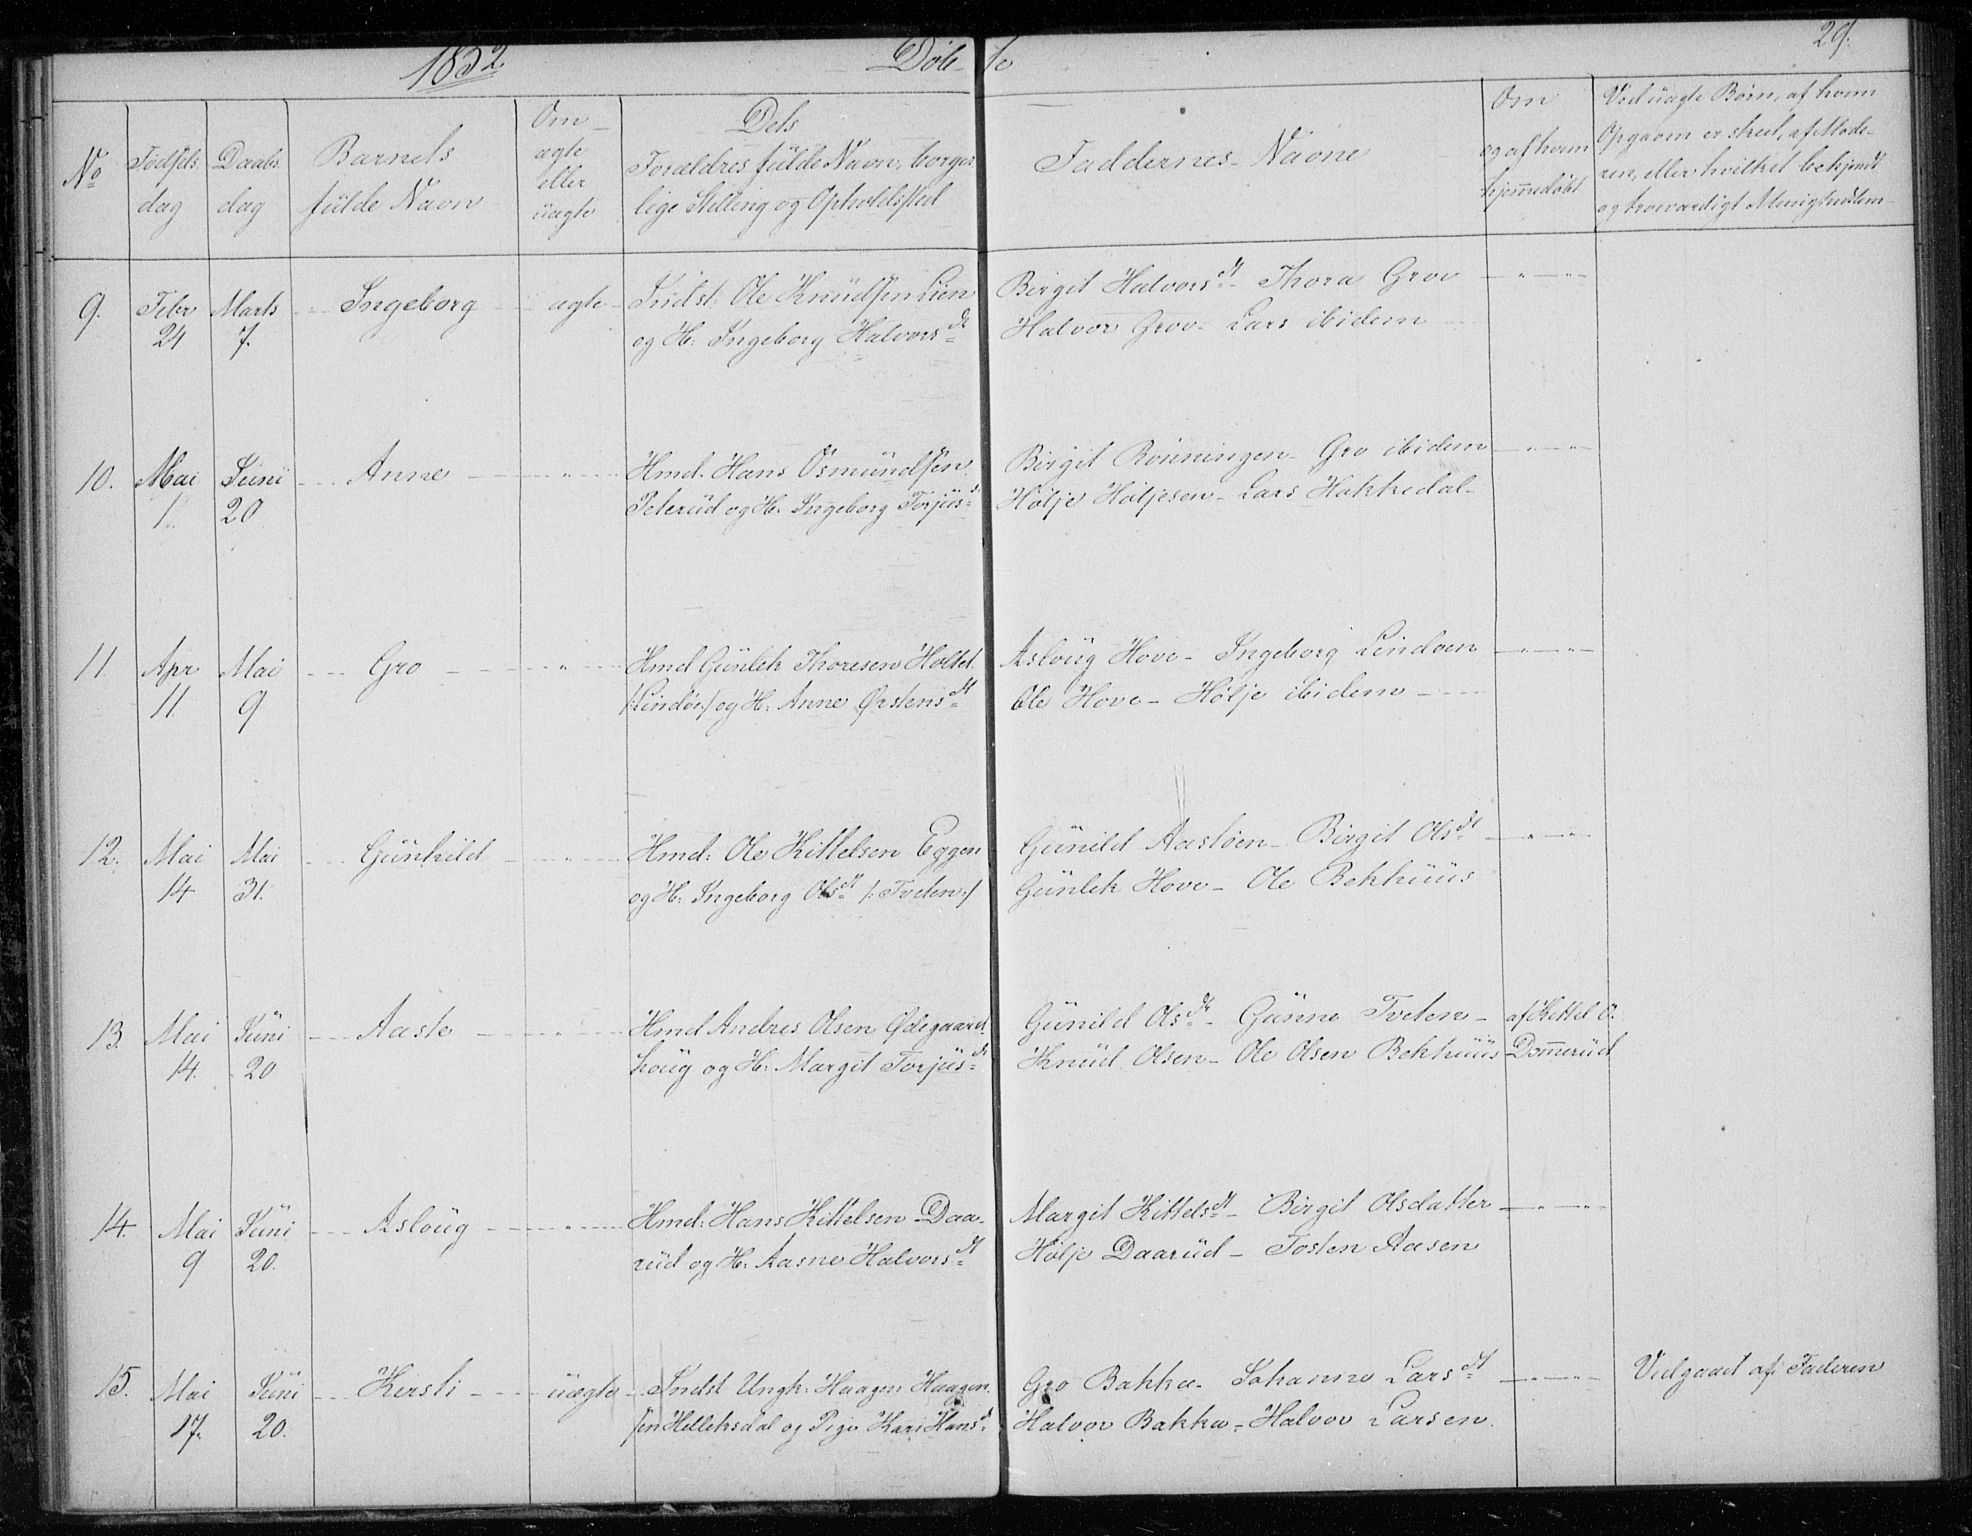 1852 Døbte 29.
No
Fødsels dag
Daabs dag
Barnets fulde Navn
Om ægte eller uægte
Dets Forældres fulde Navn, borgerlige Stilling og Opholdssted
Faddernes Navne
Om og af hvem hjem̄edøbt
Ved uægte Børn, af hvem Opgaven er skeet, af Moderen, eller hvilket bekjendt og troværdigt Menighedslem
9. Febr Marts Ingeborg ægte Indst: Ole Knudsen Lien Birgit Halvorsdt - Thora Grov — " — " —
24 7. og H: Ingeborg Halvorsdt Halvor Grov - Lars ibidem
10. Mai Juni Anne " Hmd. Hans Osmundsen Birgit Rønningen - Gro ibidem — " — " —
1. 20 Peterud og H: Ingeborg Torjusd Hølje Høljesen - Lars Hakkedal -
11. Apr Mai Gro " Hmd Gunlek Thoresen Holtet Asloug Hove - Ingeborg Lindøen — " — " —
11. 9 /:Lindøe:/ og H: Anne Østensdt Ole Hove - Hølje ibidem
12. Mai Mai Gunhild " Hmd: Ole Kittelsen Eggen Gunild Aasløen - Birgit Olsdt — " — " —
14 31. og H: Ingeborg Olsdt /: Tveten:/ Gunlek Hove - Ole Bekhuus
13. Mai Juni Aaste " Hmd Andres Olsen Ødegaard Gunild Olsdt - Gunne Tveten - af Kittel O.
14. 20 houg og H: Margit Torjusdt Knud Olsen - Ole Olsen Bekhuus Dom̄erud
14. Mai Juni Asloug " Hmd: Hans Kittelsen Daa- Margit Kittelsdt - Birgit Olsdatter — " — " —
9 20. rud og H: Aasne Halvorsdt Hølje Daarud - Tosten Aasen
15. Mai Juni Kersti uægte Indst Ungk: Haagen Haagen- Gro Bakka - Johanne Larsdt — " — " — Vedgaaet af Faderen
17. 20. sen Helleksdal og Pige Kari Hansd Halvor Bakka - Halvor Larsen.